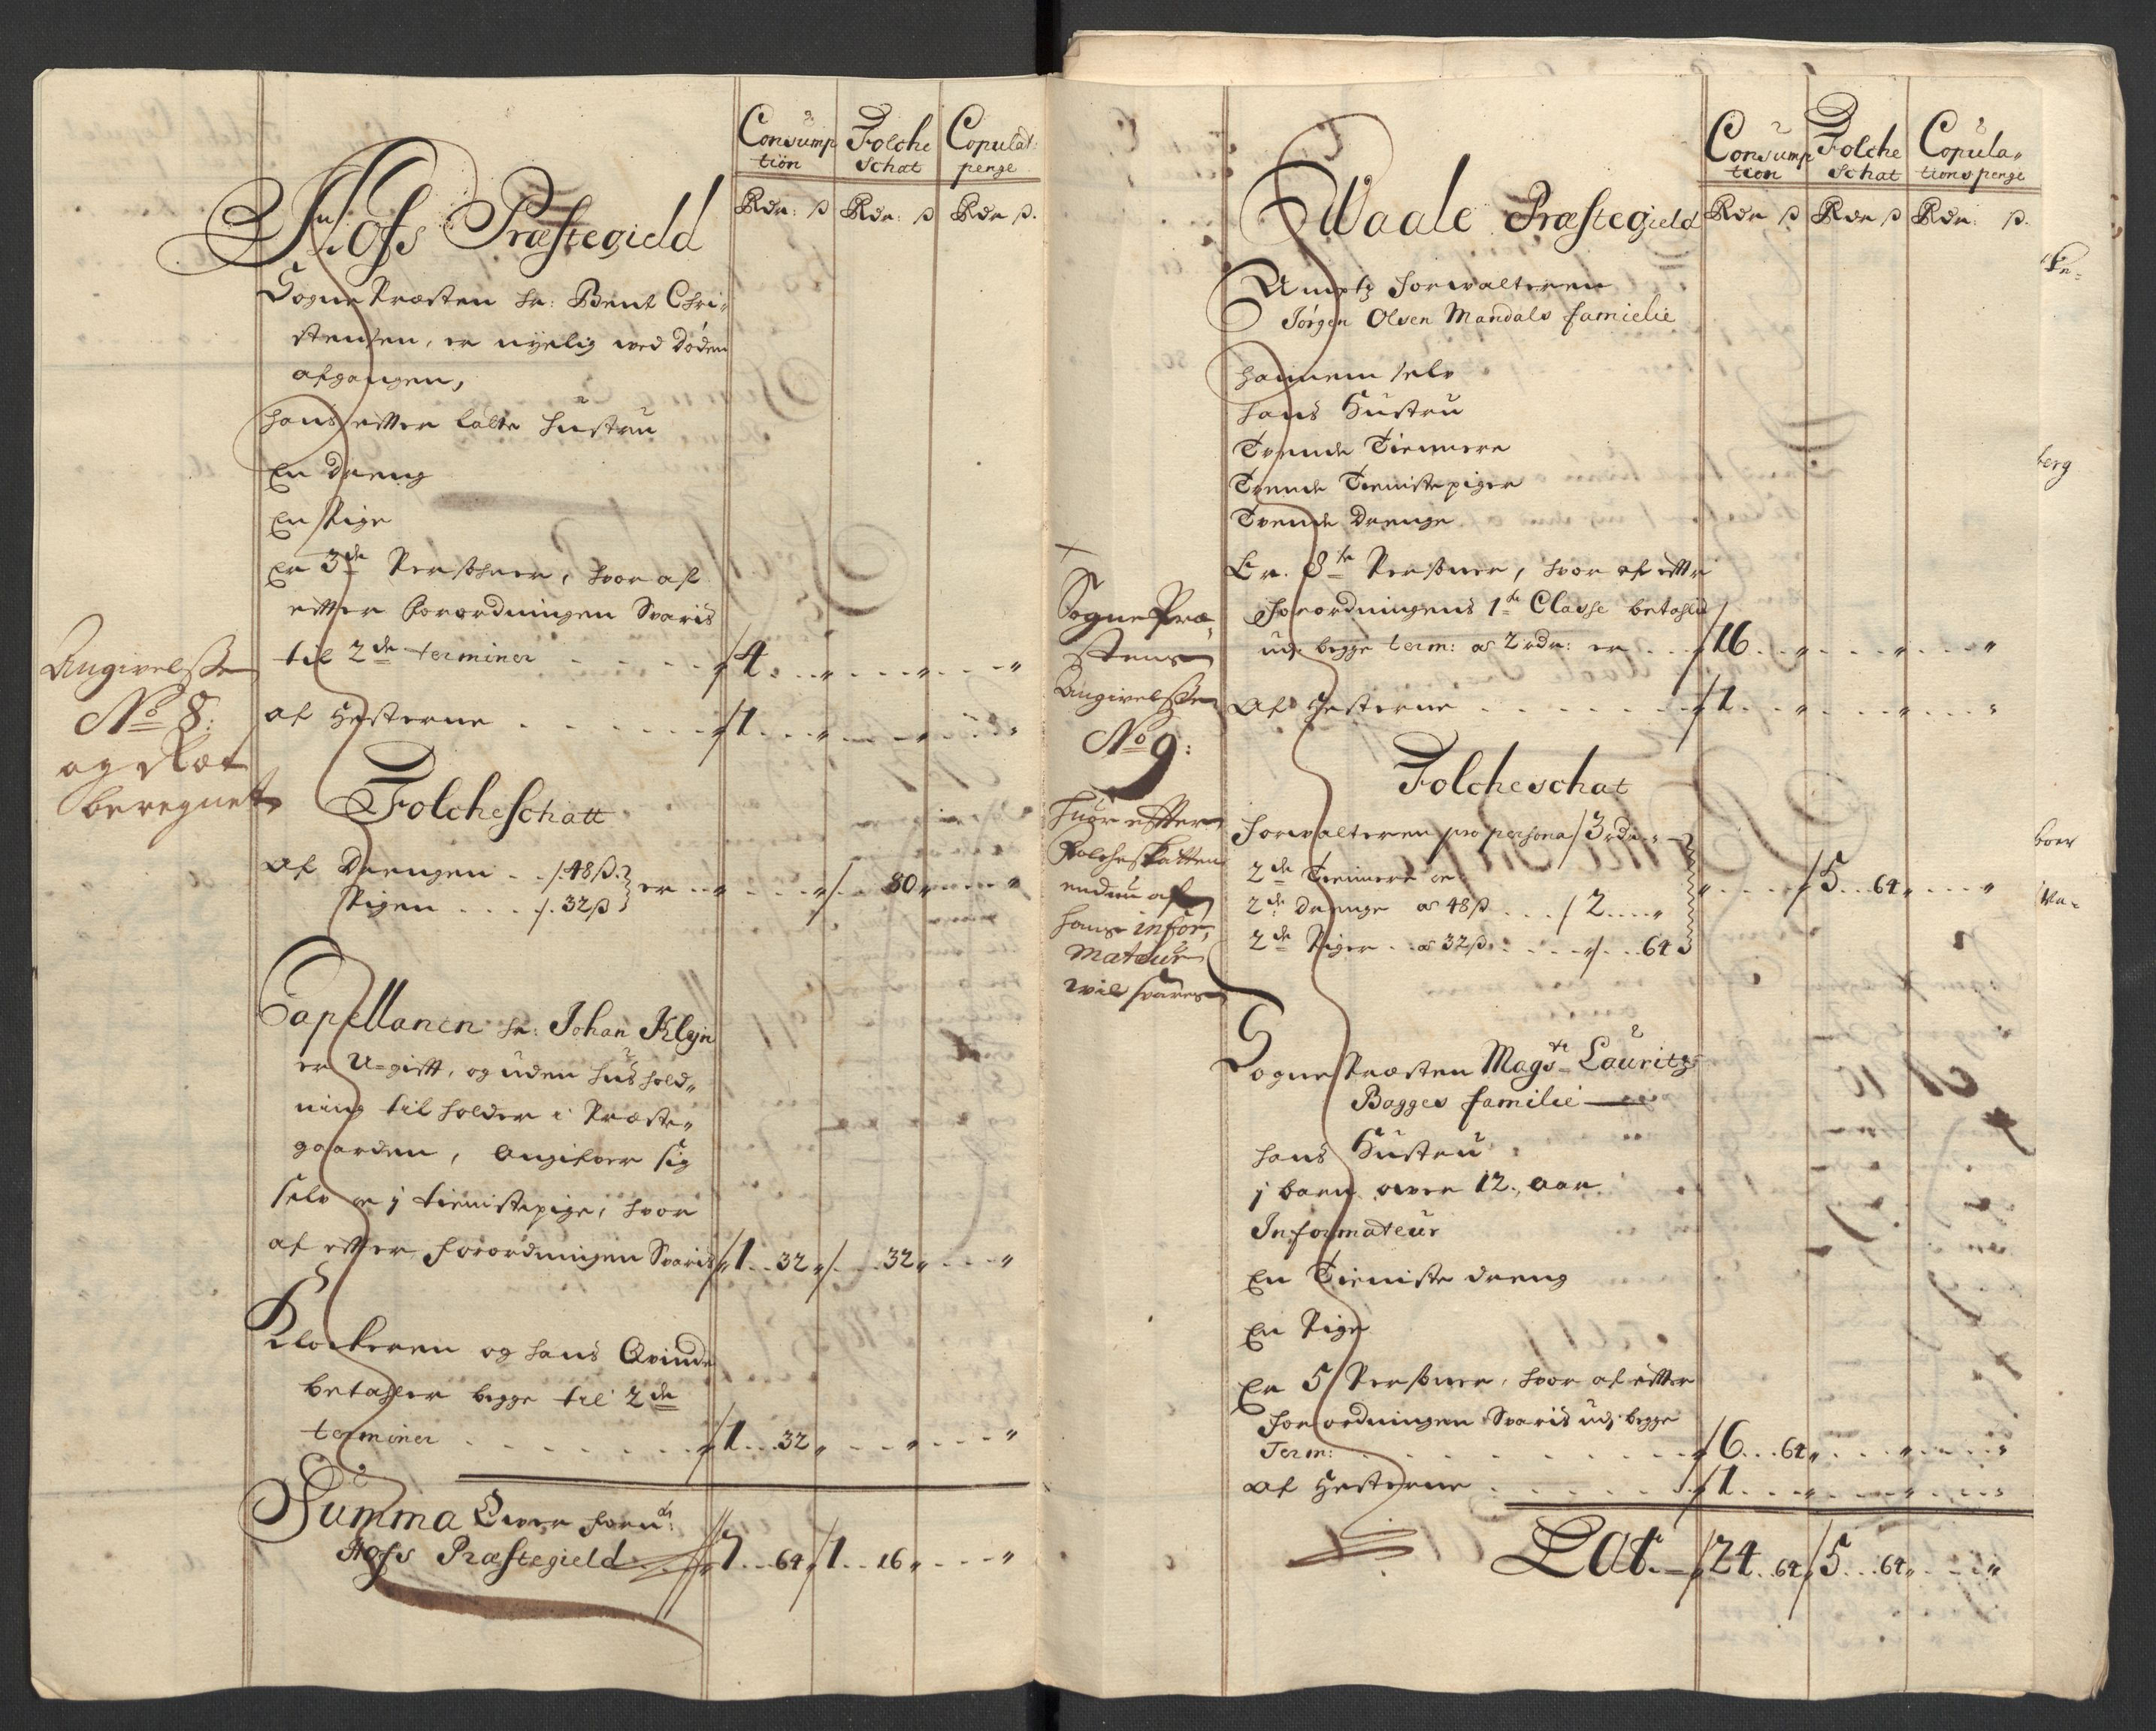 Consump
tion
Folche
Schat
Copulat:
penge
Rdr: ß Rdr: ß Rdr ß.
Hofs Præstegield
Sogne Præsten Hr: Bent Chri-
stensen, er nyelig ved Døden
afgangen,
hans efter latte Hustru
En Dreng
En Pige
Er 3de Persohner, hvor af
efter forordningen Svaris
til 2de terminer . . . . . 4 . . „ . . . „ . . . „
af Hesterne . . . . . . 1 . . „ . . . „ . . . „
Angivelsse
No 8:
og Ræt
beregnet
FolcheSchatt
Af Drengen . . 48ß.
Pigen . . . 32ß
er . . „ . . . „ . . 80 „ . . . „
Capellanen Hr: Johan Klyn
er U-gift, og uden Huushold-
ning til holder i Præste-
gaarden, Angifver sig
selv og 1 tienistepige, hvor
af efter forordningen Svaris 1 . . 32 „ . . 32 „ . . . „
Klockeren og hans Qvinde
betahler begge til 2de
terminer . . . . . . . 1 . . 32 „ . . . „ . . . „
Summa Over forn:
Hofs Præstegield 7 . . 64 1 . . 16 „ . . . „
Consump
tion
Folche
Schat
Copula-
tions penge
Rdr ß Rdr ß Rdr: ß.
Waale Præstegield
Amptz Forwalteren
Jørgen Olsen Mandals familie
Hannem selv
hans Hustru
Tvende Tiennere
Trende Tienistepiger
Tvende Drenge
Er. 8te Persohner, hvor af efter
forordningens 1te Classe betahlis
udj begge term: a 2 rdr: er . . . 16 . . „ . . . „ . . . „
Af Hesterne . . . . . . 1 . . „ . . . „ . . . „
Sogne Præ-
stens
Angivelsse
No 9:
Huor efter
Folcheskatten
endnu af
hans infor-
Mateur
vil svares
Folcheschat
Forwalteren pro persona 3 rdr „
2de Tiennere er
2de Drenge a 48ß . . . 2 . . . „
2de Piger . . a 32ß . . . . . 64
„ . . . 5 . . 64 „ . . . „
Sogne Præsten Magstr Lauritz
Bagges familie
Hans Hustru
1 barn over 12. Aar
Informateur
En Tieniste dreng
En Pige
Er 5 Persohner, hvor af efter
forordningen Svaris udj begge
Term: . . . . . . . 6 . . 64 „ . . . „ . . . „
Af Hesterne . . . . . . 1 . . „ . . . „ . . . „
Lat. 24 . . 64 5 . . 64 „ . . . „
berg